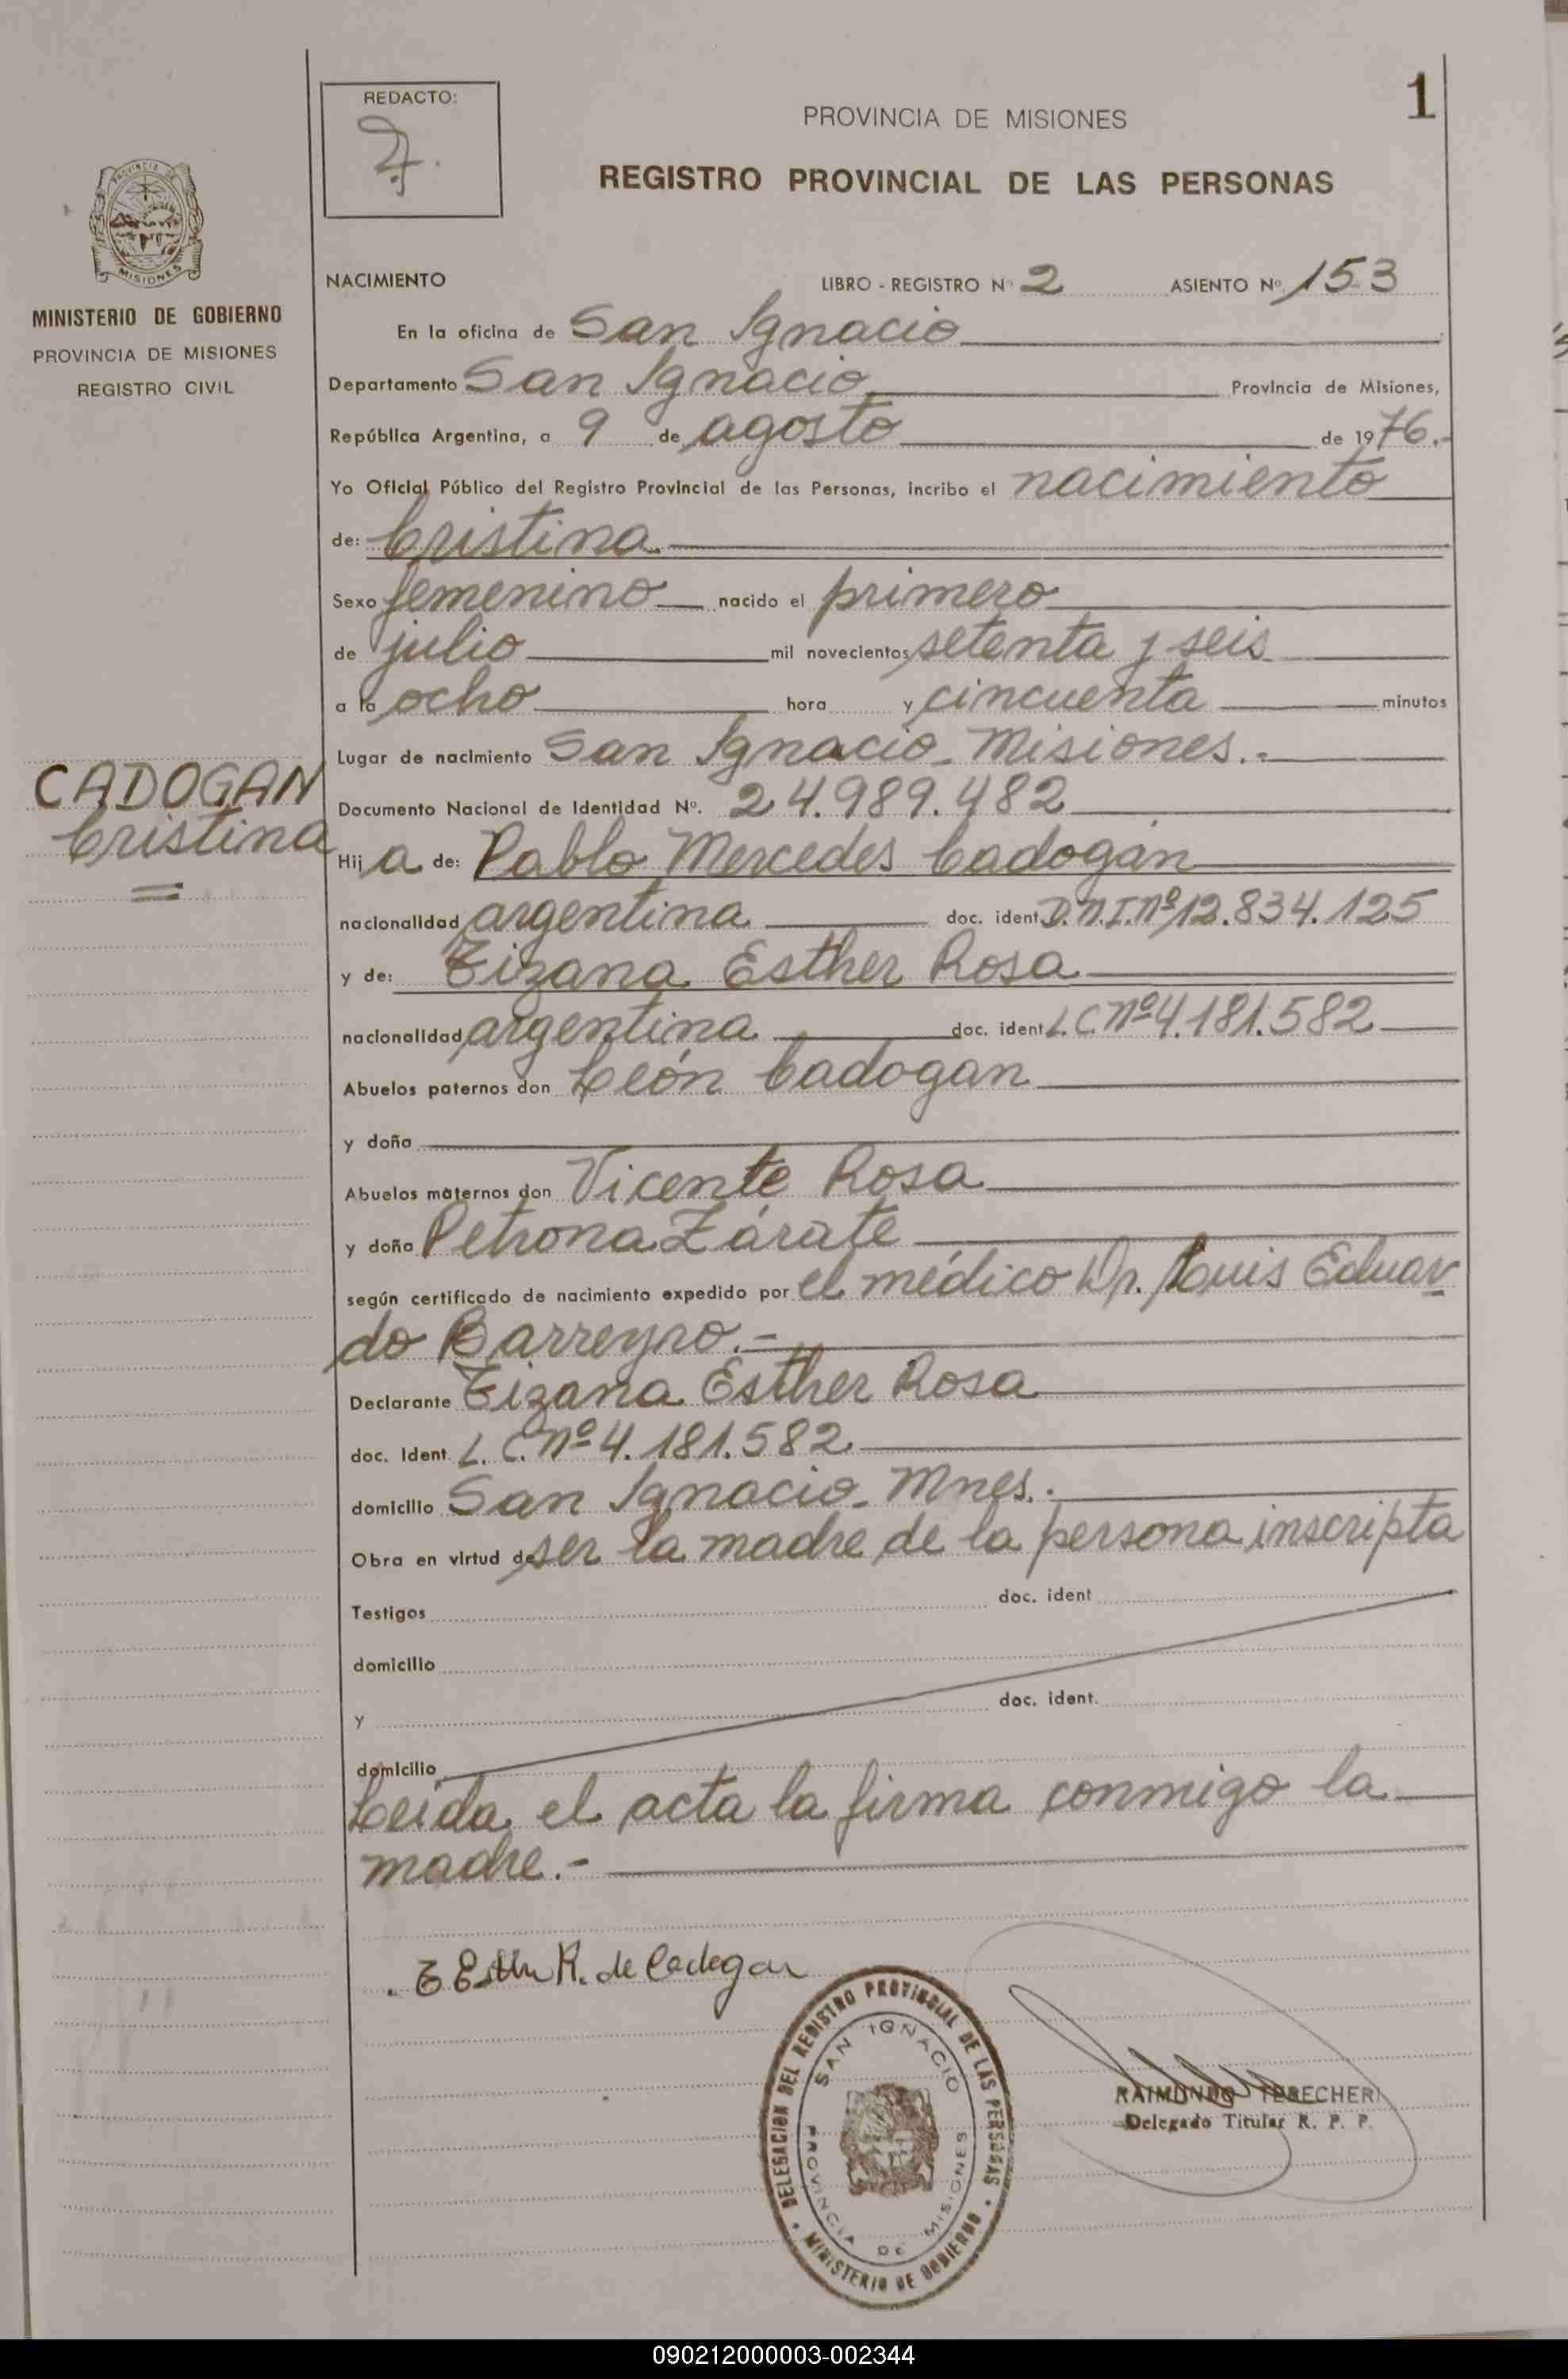 1
REDACTO:
PROVINCIA DE MISIONES
REGISTRO PROVINCIAL DE LAS PERSONAS
PROVINCIA DE
MISIONES
MINISTERIO DE GOBIERNO
PROVINCIA DE MISIONES
REGISTRO CIVIL
NACIMIENTO LIBRO - REGISTRO N° 2 ASIENTO Nº 153
En la oficina de San Ignacio
Departamento San Ignacio Provincia de Misiones,
República Argentina, a 9 de agosto de 1976.-
Yo Oficial Público del Registro Provincial de las Personas, incribo el nacimiento
de: Cristina
Sexo femenino nacido el primero
de julio mil novecientos setenta y seis
a la ocho hora y cincuenta minutos
Lugar de nacimiento San Ignacio - Misiones.-
CADOGAN
Cristina
Documento Nacional de Identidad Nº. 24.989.482
Hij a de: Pablo Mercedes Cadogan
nacionalidad argentina doc. ident D.N.I.nº 12.834.125
y de: Tizana Esther Rosa
nacionalidad argentina doc. ident L.C.nº 4.181.582
Abuelos paternos don León Cadogan
y doña
Abuelos maternos don Vicente Rosa
y doña Petrona Zárate
según certificado de nacimiento expedido por el médico Dr. Luis Eduar
do Barreyro.-
Declarante Tizana Esther Rosa
doc. Ident. L.C.nº 4.181.582
domicilio San Ignacio - Mnes.-
Obra en virtud de ser la madre de la persona inscripta
Testigos doc. ident
domicilio
y doc. ident.
domicilio
Leída el acta la firma conmigo la
madre.-
T Esther R. de Cadogan
DELEGACION DEL REGISTRO PROVINCIAL DE LAS PERSONAS
SAN IGNACIO
PROVINCIA DE MISIONES
MINISTERIO DE GOBIERNO
RAIMUNDO
Delegado Titular R. P. P.
090212000003-002344